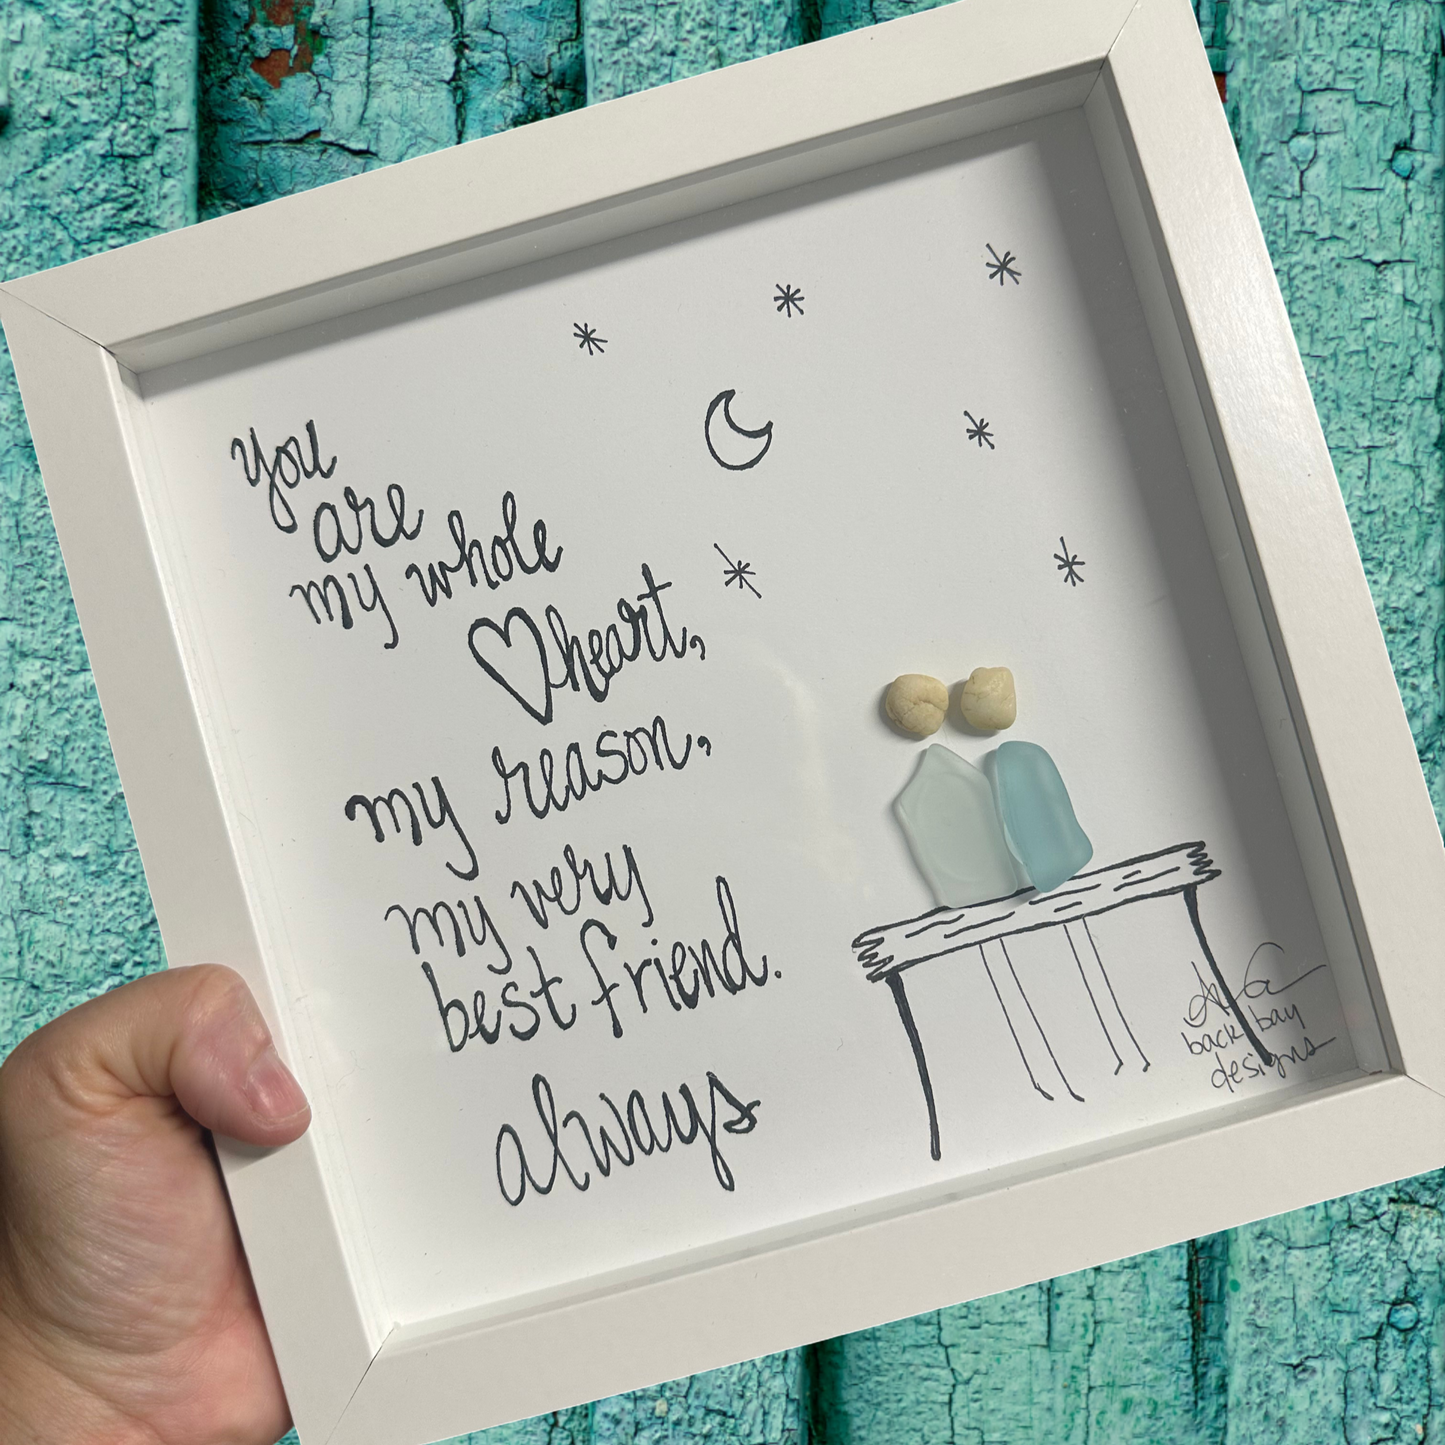 you
are
my whole
heart,
my reason,
my very
best friend.
always
back bay
designs